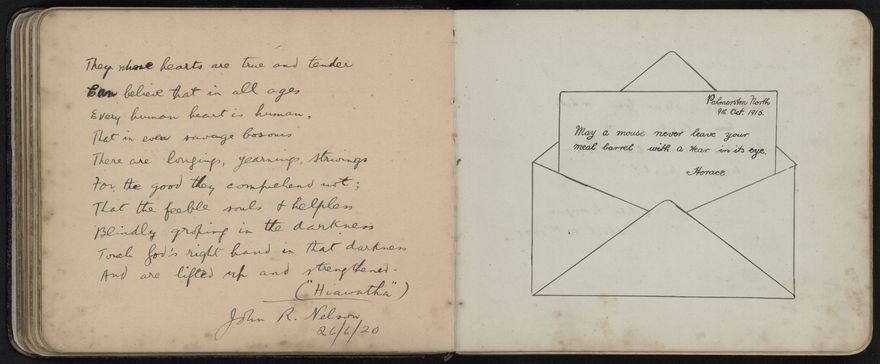 They whose hearts are true and tender
Can believe that in all ages
Every human heart is human,
That in even savage bosoms
There are longings, yearnings, strivings
For the good they comprehend not;
That the feeble souls & helpless
Blindly groping in the darkness
Touch God's right hand in that darkness
And are lifted up and strengthened.
("Hiawatha")
John R. Nelson
26/6/20
Palmerston North
9th Oct. 1915.
May a mouse never leave your
meal barrel with a tear in its eye.
Horace